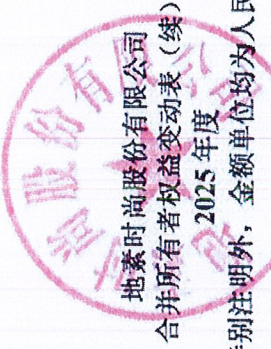 地素时尚股份有限公司
合并所有者权益变动表（续）
2025 年度
别注明外，金额单位均为人民